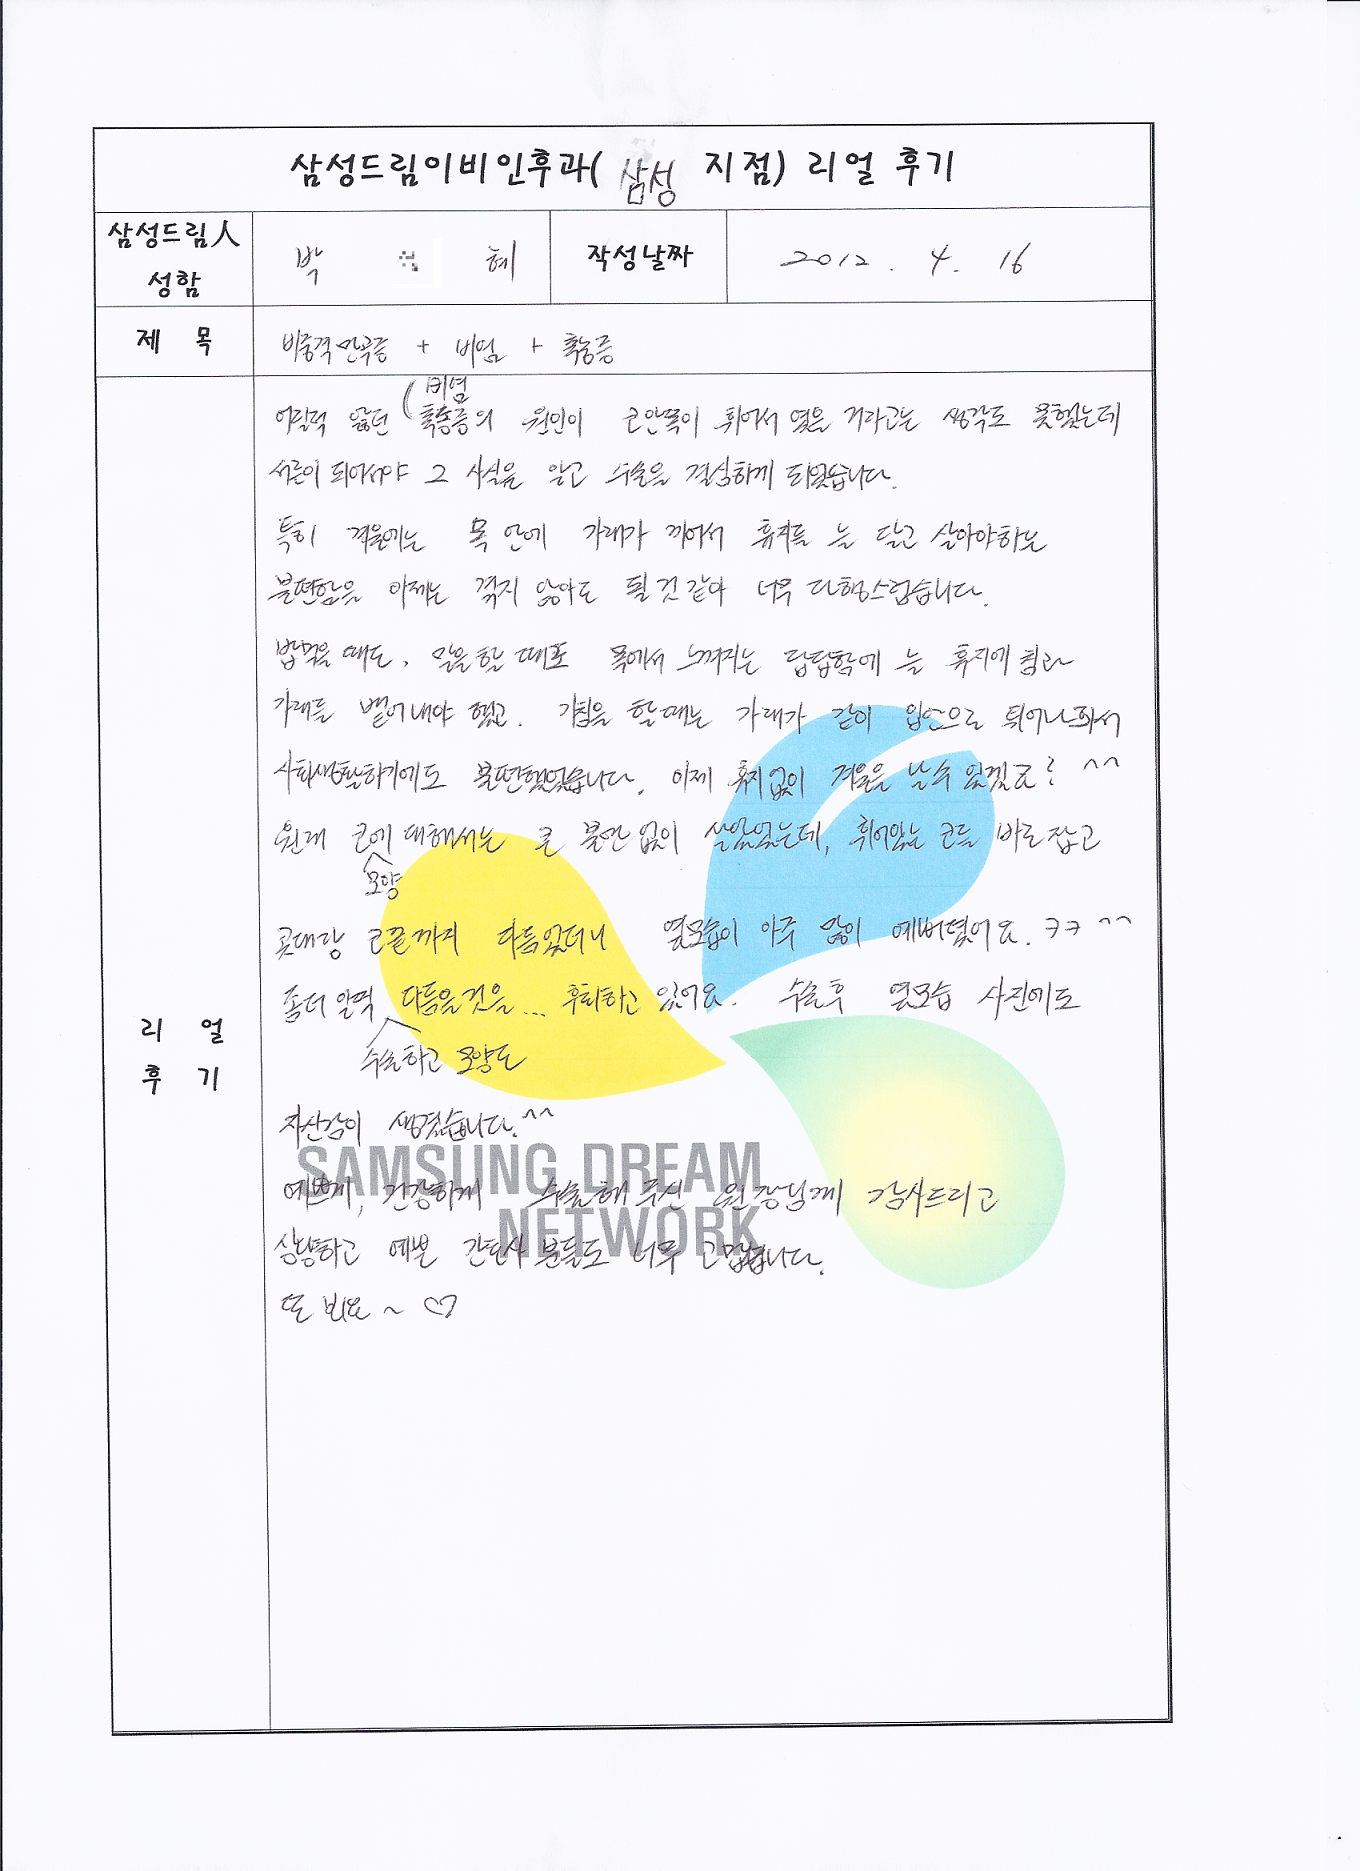 삼성드림이비인후과( 삼성 지점) 리얼 후기
삼성드림人
성함
박 혜
작성날짜
2012. 4. 16
제 목
비중격만곡증 + 비염 + 축농증
비염
어릴적 앓던 축농증의 원인이 코안쪽이 휘어서 였을 거라고는 생각도 못했는데
서른이 되어서야 그 사실을 알고 수술을 결심하게 되었습니다.
특히 겨울에는 목 안에 가래가 끼어서 휴지를 늘 달고 살아야하는
불편함을 이제는 겪지 않아도 될 것 같아 너무 다행스럽습니다.
밥먹을 때도, 말을 할 때도 목에서 느껴지는 답답함에 늘 휴지에 침과
가래를 뱉어내야 했고. 기침을 할때는 가래가 같이 입안으로 튀어나와서
사회생활하기에도 불편했었습니다. 이제 휴지없이 겨울을 날 수 있겠죠? ^^
원래 코에 대해서는 큰 불만 없이 살았었는데, 휘어있는 코를 바로잡고
모양
콧대랑 코끝까지 다듬었더니 옆모습이 아주 많이 예뻐졌어요. ㅋㅋ ^^
좀더 일찍 다듬을것을... 후회하고 있어요. 수술후 옆모습 사진에도
수술하고 모양도
자신감이 생겼습니다.^^
SAMSUNG DREAM
NETWORK
예쁘게, 건강하게 수술해 주신 원장님께 감사드리고
상냥하고 예쁜 간호사 분들도 너무 고맙습니다.
또 뵈요 ~ ♡
리 얼
후 기